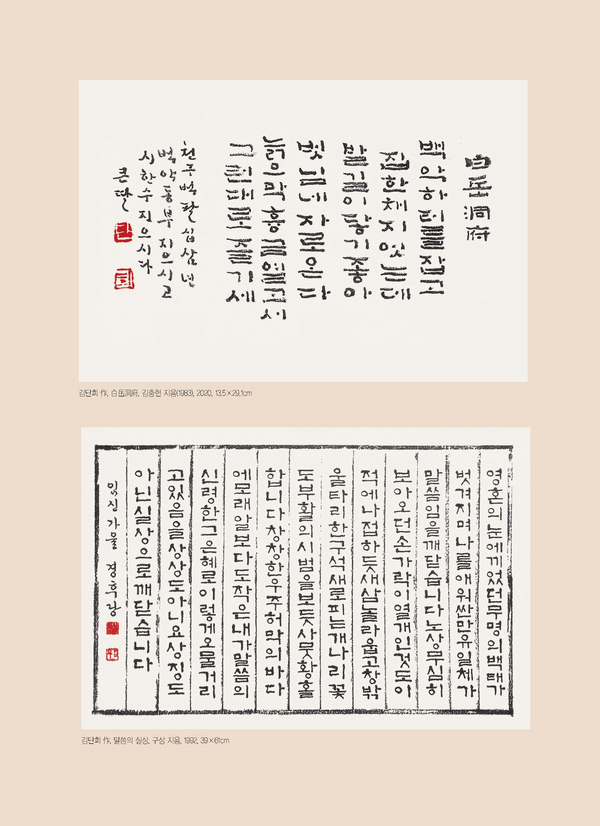 白岳洞府
백악하 터를 잡고
집한채 지엇는데
발길이 닿기 좋아
벗님네 자로 온다
늙으막 흥을
그런대로 즐기세
천구백팔십삼년
백악동부 지으시고
시한수 지으시다
큰딸
김단희 作, 白岳洞府, 김충현 지음(1983), 2020, 13.5×29.1cm
영혼의눈에끼었던무명의백태가
벗겨지며나를에워싼만유일체가
말씀임을깨닫습니다노상무심히
보아오던손가락이열개인것도이
적에나접하듯새삼놀라웁고창밖
울타리한구석새로피는개나리꽃
도부활의시범을보듯사뭇황홀
합니다창창한우주허막의바다
에모래알보다도작은내가말씀의
신령한그은혜로이렇게오물거리
고있음을상상도아니요상징도
아닌실상으로깨닫습니다
임신가을 경후랑
김단희 作, 말씀의 실상, 구상 지음, 1992, 39×61cm